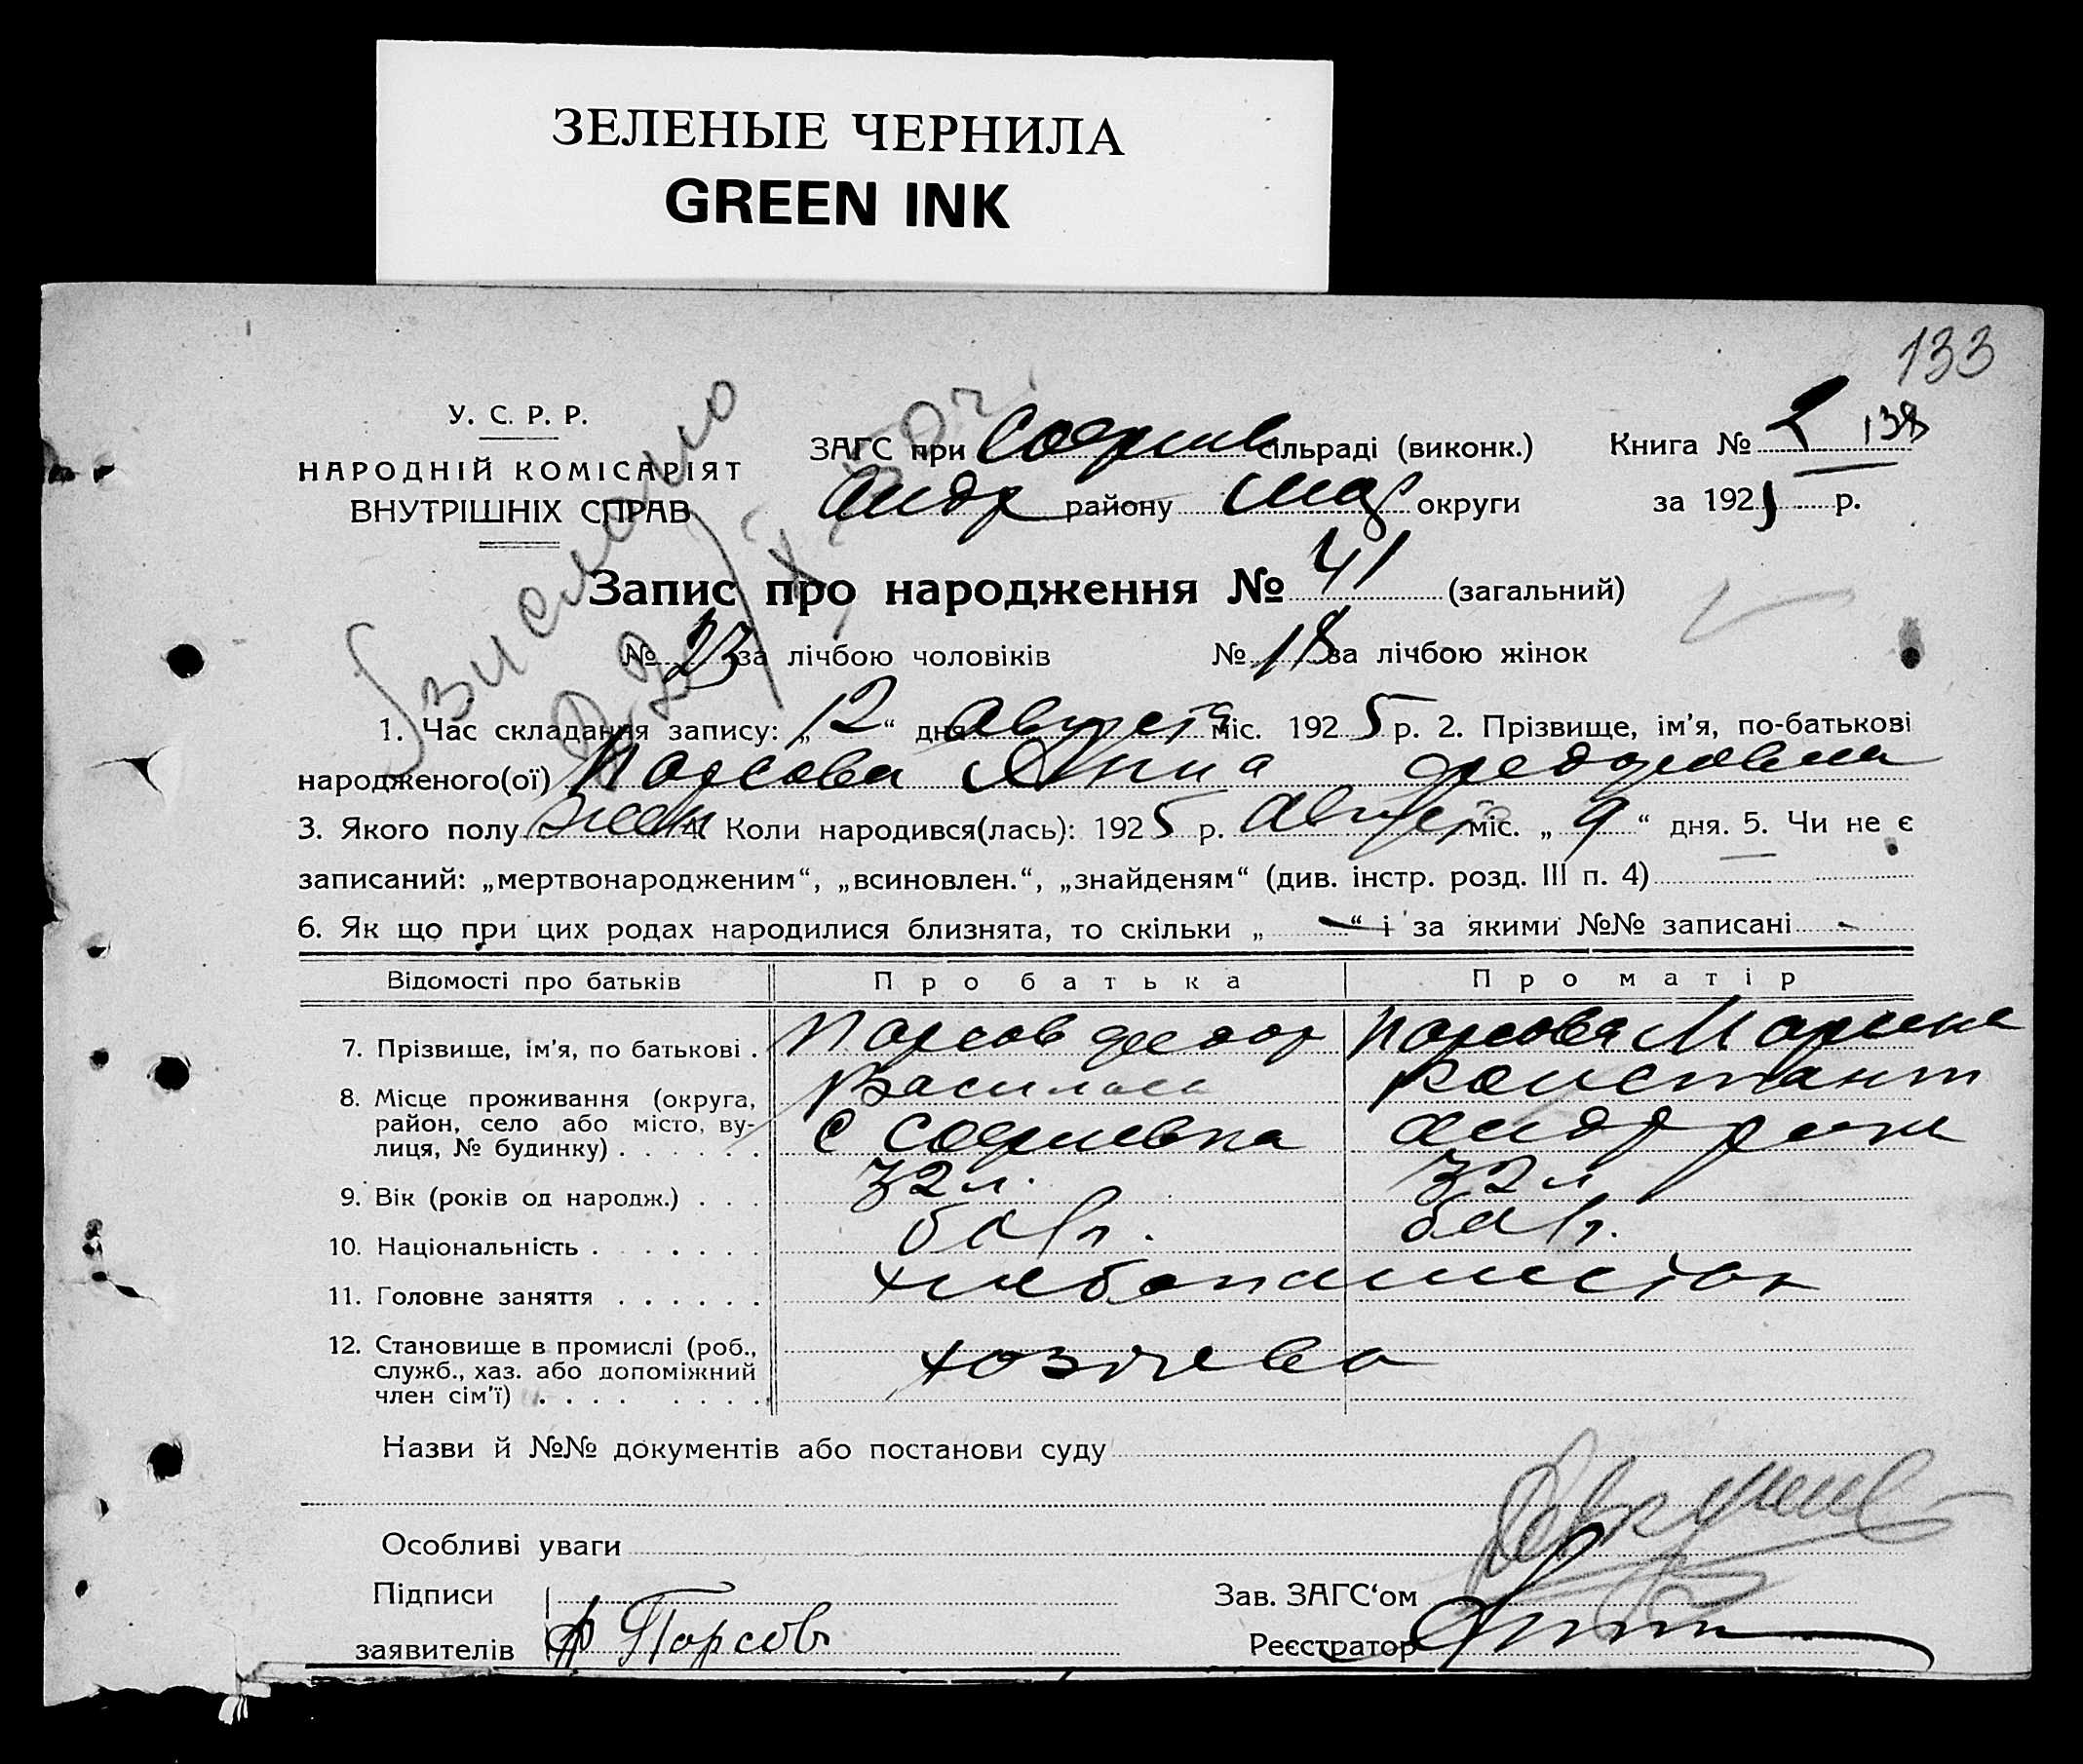 ЗЕЛЕНЫЕ ЧЕРНИЛА
GREEN INK
133
У. С. Р. Р.
НАРОДНІЙ КОМІСАРІЯТ
ВНУТРІШНІХ СПРАВ
ЗАГС при Софиев сільраді (виконк.)
Андр району Мар округи
Книга № 2 138
за 1925 р.
Запис про народження № 41 (загальний)
№ 23 за лічбою чоловіків № 18 за лічбою жінок
1. Час складання запису: „12“ дня августа міс. 1925 р. 2. Прізвище, ім'я, по-батькові
народженого(ої) Парсова Анна Федоровна
3. Якого полу жен 4. Коли народився(лась): 1925 р. августа міс. „9“ дня. 5. Чи не є
записаний: „мертвонародженим“, „всиновлен.“, „знайденям“ (див. інстр. розд. III п. 4)
6. Як що при цих родах народилися близнята, то скільки „ — “ і за якими №№ записані -
Відомості про батьків Про батька Про матір
7. Прізвище, ім'я, по батькові . Парсов Федор Парсова Марина
Василев Констант
8. Місце проживання (округа,
район, село або місто, ву-
лиця, № будинку) . . . . . . с Софиевка Андр рик
9. Вік (років од народж.) . . . 32 л. 32 л
10. Національність . . . . . . . болг. болг.
11. Головне заняття . . . . . . хлебопашество
12. Становище в промислі (роб.,
служб., хаз. або допоміжний
член сім'ї) . . . . . . . . хозяева
Назви й №№ документів або постанови суду
Особливі уваги
Підписи
заявителів Ф Парсов
Зав. ЗАГС‘ом
Реєстратор